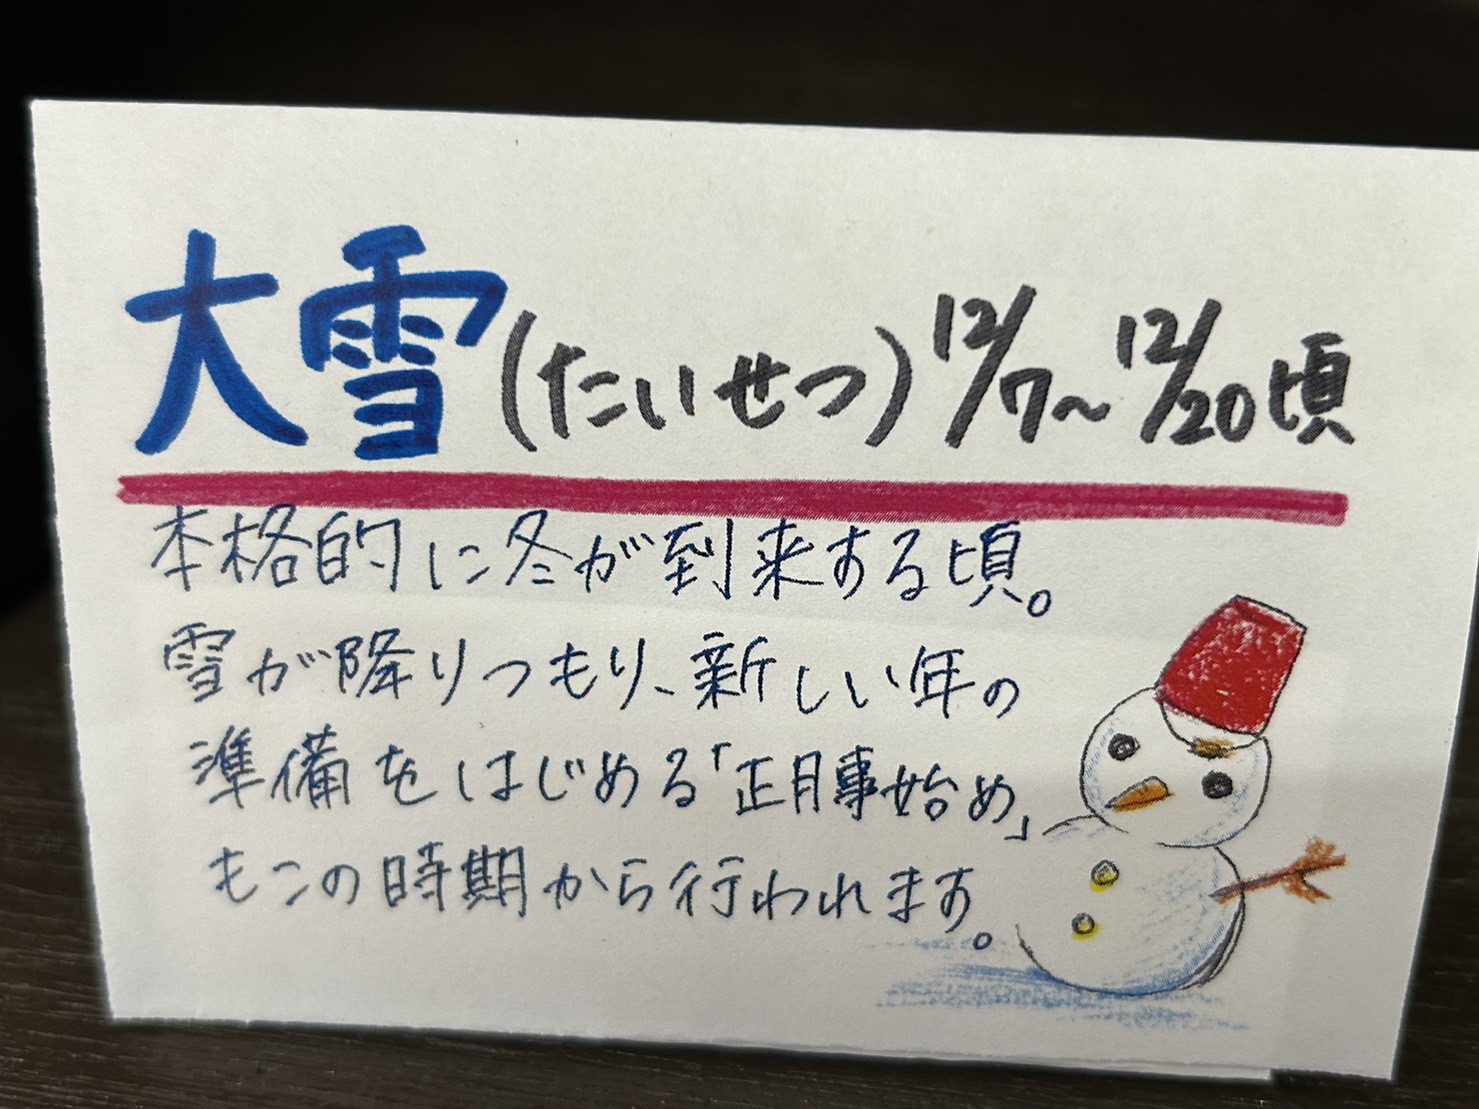 大雪(たいせつ)12/7〜12/20頃
本格的に冬が到来する頃。
雪が降りつもり、新しい年の
準備をはじめる「正月事始め」
もこの時期から行われます。